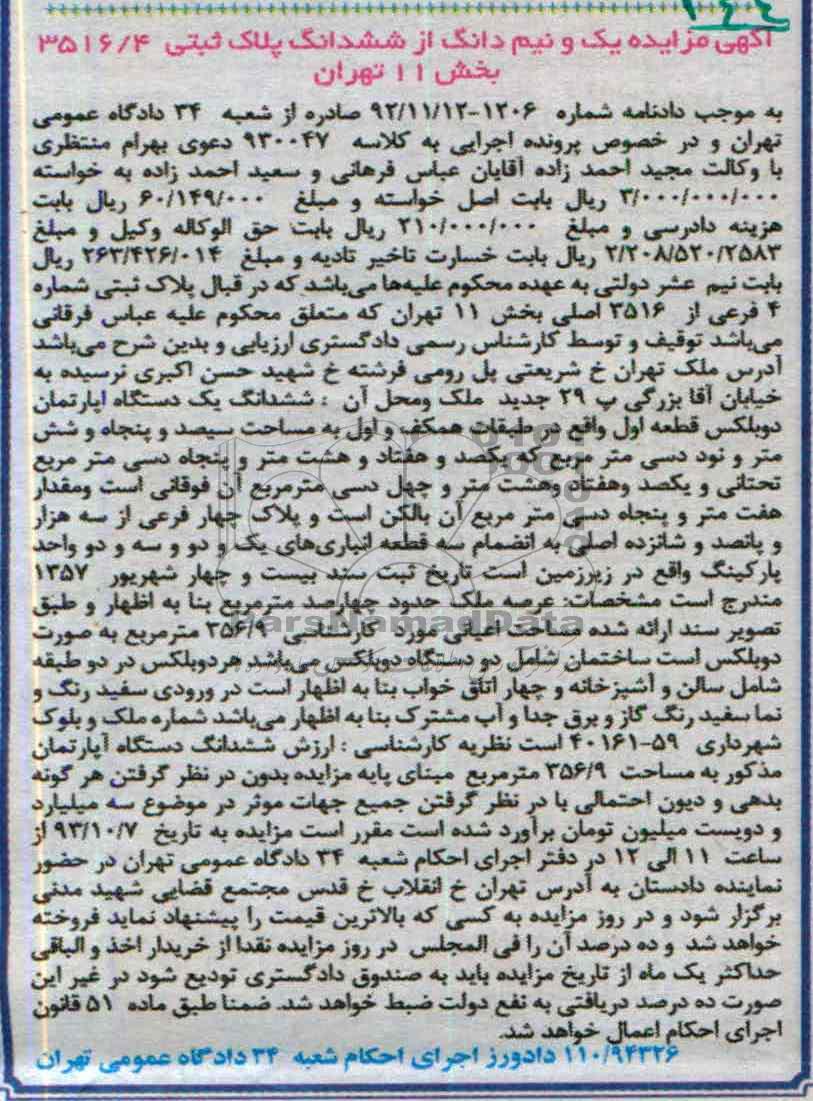 آگهی مزایده یک و نیم دانگ از ششدانگ پلاک ثبتی ۳۵۱۶/۴
بخش ۱۱ تهران
به موجب دادنامه شماره ۱۲۰۶-۹۲/۱۱/۱۲ صادره از شعبه ۳۴ دادگاه عمومی
تهران و در خصوص پرونده اجرایی به کلاسه ۹۳۰۰۴۷ دعوی بهرام منتظری
با وکالت مجید احمد زاده آقایان عباس فرهانی و سعید احمد زاده به خواسته
۳/۰۰۰/۰۰۰/۰۰۰ ریال بابت اصل خواسته و مبلغ ۶۰/۱۴۹/۰۰۰ ریال بابت
هزینه دادرسی و مبلغ ۲۱۰/۰۰۰/۰۰۰ ریال بابت حق الوکاله وکیل و مبلغ
۲/۲۰۸/۵۲۰/۲۵۸۳ ریال بابت خسارت تاخیر تادیه و مبلغ ۲۶۳/۴۲۶/۰۱۴ ریال
بابت نیم عشر دولتی به عهده محکوم علیه‌ها می‌باشد که در قبال پلاک ثبتی شماره
۴ فرعی از ۳۵۱۶ اصلی بخش ۱۱ تهران که متعلق محکوم علیه عباس فرقانی
می‌باشد توقیف و توسط کارشناس رسمی دادگستری ارزیابی و بدین شرح می‌باشد
آدرس ملک تهران خ شریعتی پل رومی فرشته خ شهید حسن اکبری نرسیده به
خیابان آقا بزرگی پ ۲۹ جدید ملک ومحل آن : ششدانگ یک دستگاه اپارتمان
دوبلکس قطعه اول واقع در طبقات همکف و اول به مساحت سیصد و پنجاه و شش
متر و نود دسی متر مربع که یکصد و هفتاد و هشت متر و پنجاه دسی متر مربع
تحتانی و یکصد وهفتاد وهشت متر و چهل دسی مترمربع آن فوقانی است ومقدار
هفت متر و پنجاه دسی متر مربع آن بالکن است و پلاک چهار فرعی از سه هزار
و پانصد و شانزده اصلی به انضمام سه قطعه انباری‌های یک و دو و سه و دو واحد
پارکینگ واقع در زیرزمین است تاریخ ثبت سند بیست و چهار شهریور ۱۳۵۷
مندرج است مشخصات: عرصه ملک حدود چهارصد مترمربع بنا به اظهار و طبق
تصویر سند ارائه شده مساحت اعیانی مورد کارشناسی ۳۵۶/۹ مترمربع به صورت
دوبلکس است ساختمان شامل دو دستگاه دوبلکس می‌باشد هردوبلکس در دو طبقه
شامل سالن و آشپزخانه و چهار اتاق خواب بنا به اظهار است در ورودی سفید رنگ و
نما سفید رنگ گاز و برق جدا و آب مشترک بنا به اظهار می‌باشد شماره ملک و بلوک
شهرداری ۵۹-۴۰۱۶۱ است نظریه کارشناسی : ارزش ششدانگ دستگاه آپارتمان
مذکور به مساحت ۳۵۶/۹ مترمربع مبنای پایه مزایده بدون در نظر گرفتن هر گونه
بدهی و دیون احتمالی با در نظر گرفتن جمیع جهات موثر در موضوع سه میلیارد
و دویست میلیون تومان برآورد شده است مقرر است مزایده به تاریخ ۹۳/۱۰/۷ از
ساعت ۱۱ الی ۱۲ در دفتر اجرای احکام شعبه ۳۴ دادگاه عمومی تهران در حضور
نماینده دادستان به آدرس تهران خ انقلاب خ قدس مجتمع قضایی شهید مدنی
برگزار شود و در روز مزایده به کسی که بالاترین قیمت را پیشنهاد نماید فروخته
خواهد شد و ده درصد آن را فی المجلس در روز مزایده نقدا از خریدار اخذ و الباقی
حداکثر یک ماه از تاریخ مزایده باید به صندوق دادگستری تودیع شود در غیر این
صورت ده درصد دریافتی به نفع دولت ضبط خواهد شد. ضمنا طبق ماده ۵۱ قانون
اجرای احکام اعمال خواهد شد.
۱۱۰/۹۴۳۲۶ دادورز اجرای احکام شعبه ۳۴ دادگاه عمومی تهران
ParsNamadData